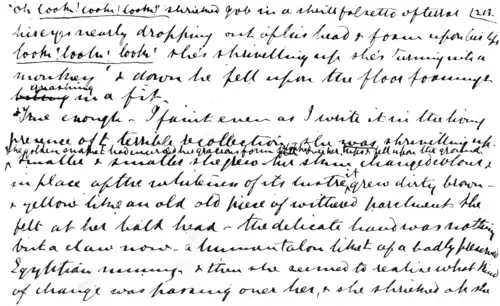 "oh look! look! look!" shrieked Job in a shrill falsetto of terror
his eyes nearly dropping out of his head & foam upon his lips
look! look! look! she's shrivelling up she's turning into a
monkey" & down he fell upon the floor foaming &
gnashing
in a fit
True enough – I faint even as I write it in the living
presence of that terrible recollection – she was shrivelling up.
the golden snake that had encircled her gracious form slipped over her hips & fell upon the ground
Smaller & smaller she grew – her skin changed colour &
in place of the whiteness of its lustre it grew dirty brown –
& yellow like an old old piece of withered parchment she
felt at her bald head – the delicate hand was nothing
but a claw now – a human talon like that of a badly preserved
Egyptian mummy & then she seemed to realise what kind
of change was passing over her, & she shrieked ah she